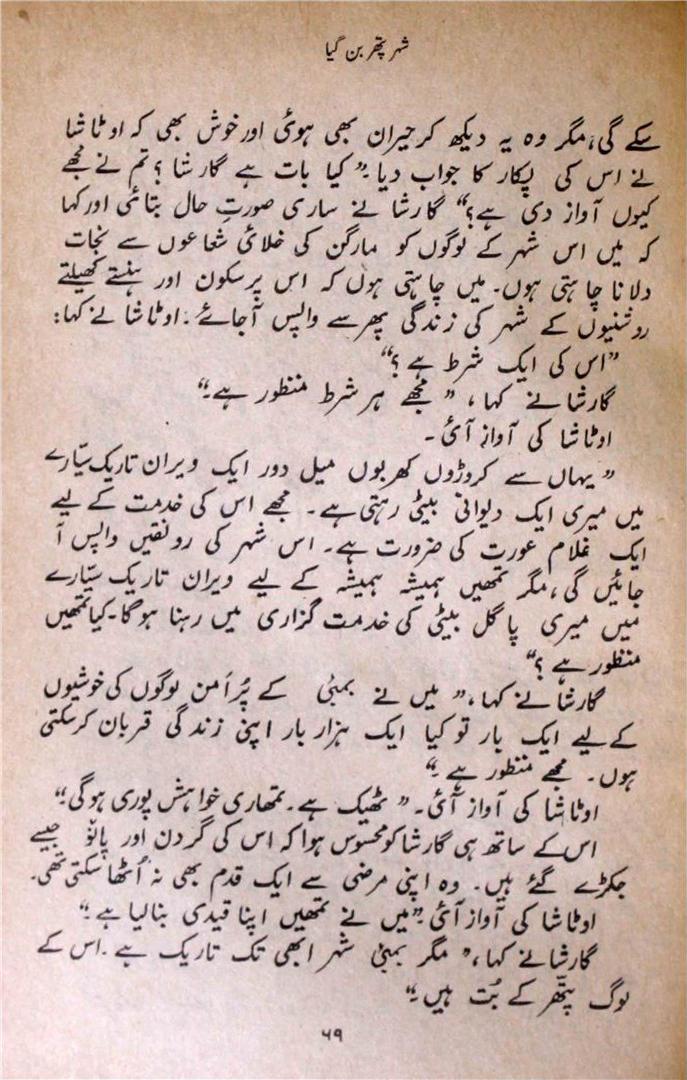 شہر پتھر بن گیا
سکے گی، مگر وہ یہ دیکھ کر حیران بھی ہوئی اور خوش بھی کہ اوٹاشا
نے اس کی پکار کا جواب دیا۔ "کیا بات ہے گارشا؟ تم نے مجھے
کیوں آواز دی ہے؟" گارشا نے ساری صورتِ حال بتائی اور کہا
کہ میں اس شہر کے لوگوں کو مارگن کی خلائی شعاعوں سے نجات
دلانا چاہتی ہوں۔ میں چاہتی ہوں کہ اس پرسکون اور ہنستے کھیلتے
روشنیوں کے شہر کی زندگی پھر سے واپس آجائے۔ اوٹاشا نے کہا:
"اس کی ایک شرط ہے؟"
گارشا نے کہا، "مجھے ہر شرط منظور ہے۔"
اوٹاشا کی آواز آئی۔
"یہاں سے کروڑوں کھربوں میل دور ایک ویران تاریک سیّارے
میں میری ایک دیوانی بیٹی رہتی ہے۔ مجھے اس کی خدمت کے لیے
ایک غلام عورت کی ضرورت ہے۔ اس شہر کی رونقیں واپس آ
جائیں گی، مگر تمھیں ہمیشہ ہمیشہ کے لیے ویران تاریک سیّارے
میں میری پاگل بیٹی کی خدمت گزاری میں رہنا ہوگا۔ کیا تمھیں
منظور ہے؟"
گارشا نے کہا، "میں نے بمبئی کے پُرامن لوگوں کی خوشیوں
کے لیے ایک بار تو کیا ایک ہزار بار اپنی زندگی قربان کرسکتی
ہوں۔ مجھے منظور ہے۔"
اوٹاشا کی آواز آئی۔ "ٹھیک ہے۔ تمھاری خواہش پوری ہوگی۔"
اس کے ساتھ ہی گارشا کو محسوس ہوا کہ اس کی گردن اور پانوٗ جیسے
جکڑے گئے ہیں۔ وہ اپنی مرضی سے ایک قدم بھی نہ اُٹھا سکتی تھی۔
اوٹاشا کی آواز آئی۔ "میں نے تمھیں اپنا قیدی بنالیا ہے۔"
گارشا نے کہا، "مگر بمبئی شہر ابھی تک تاریک ہے۔ اس کے
لوگ پتھّر کے بُت ہیں۔"
۶۹